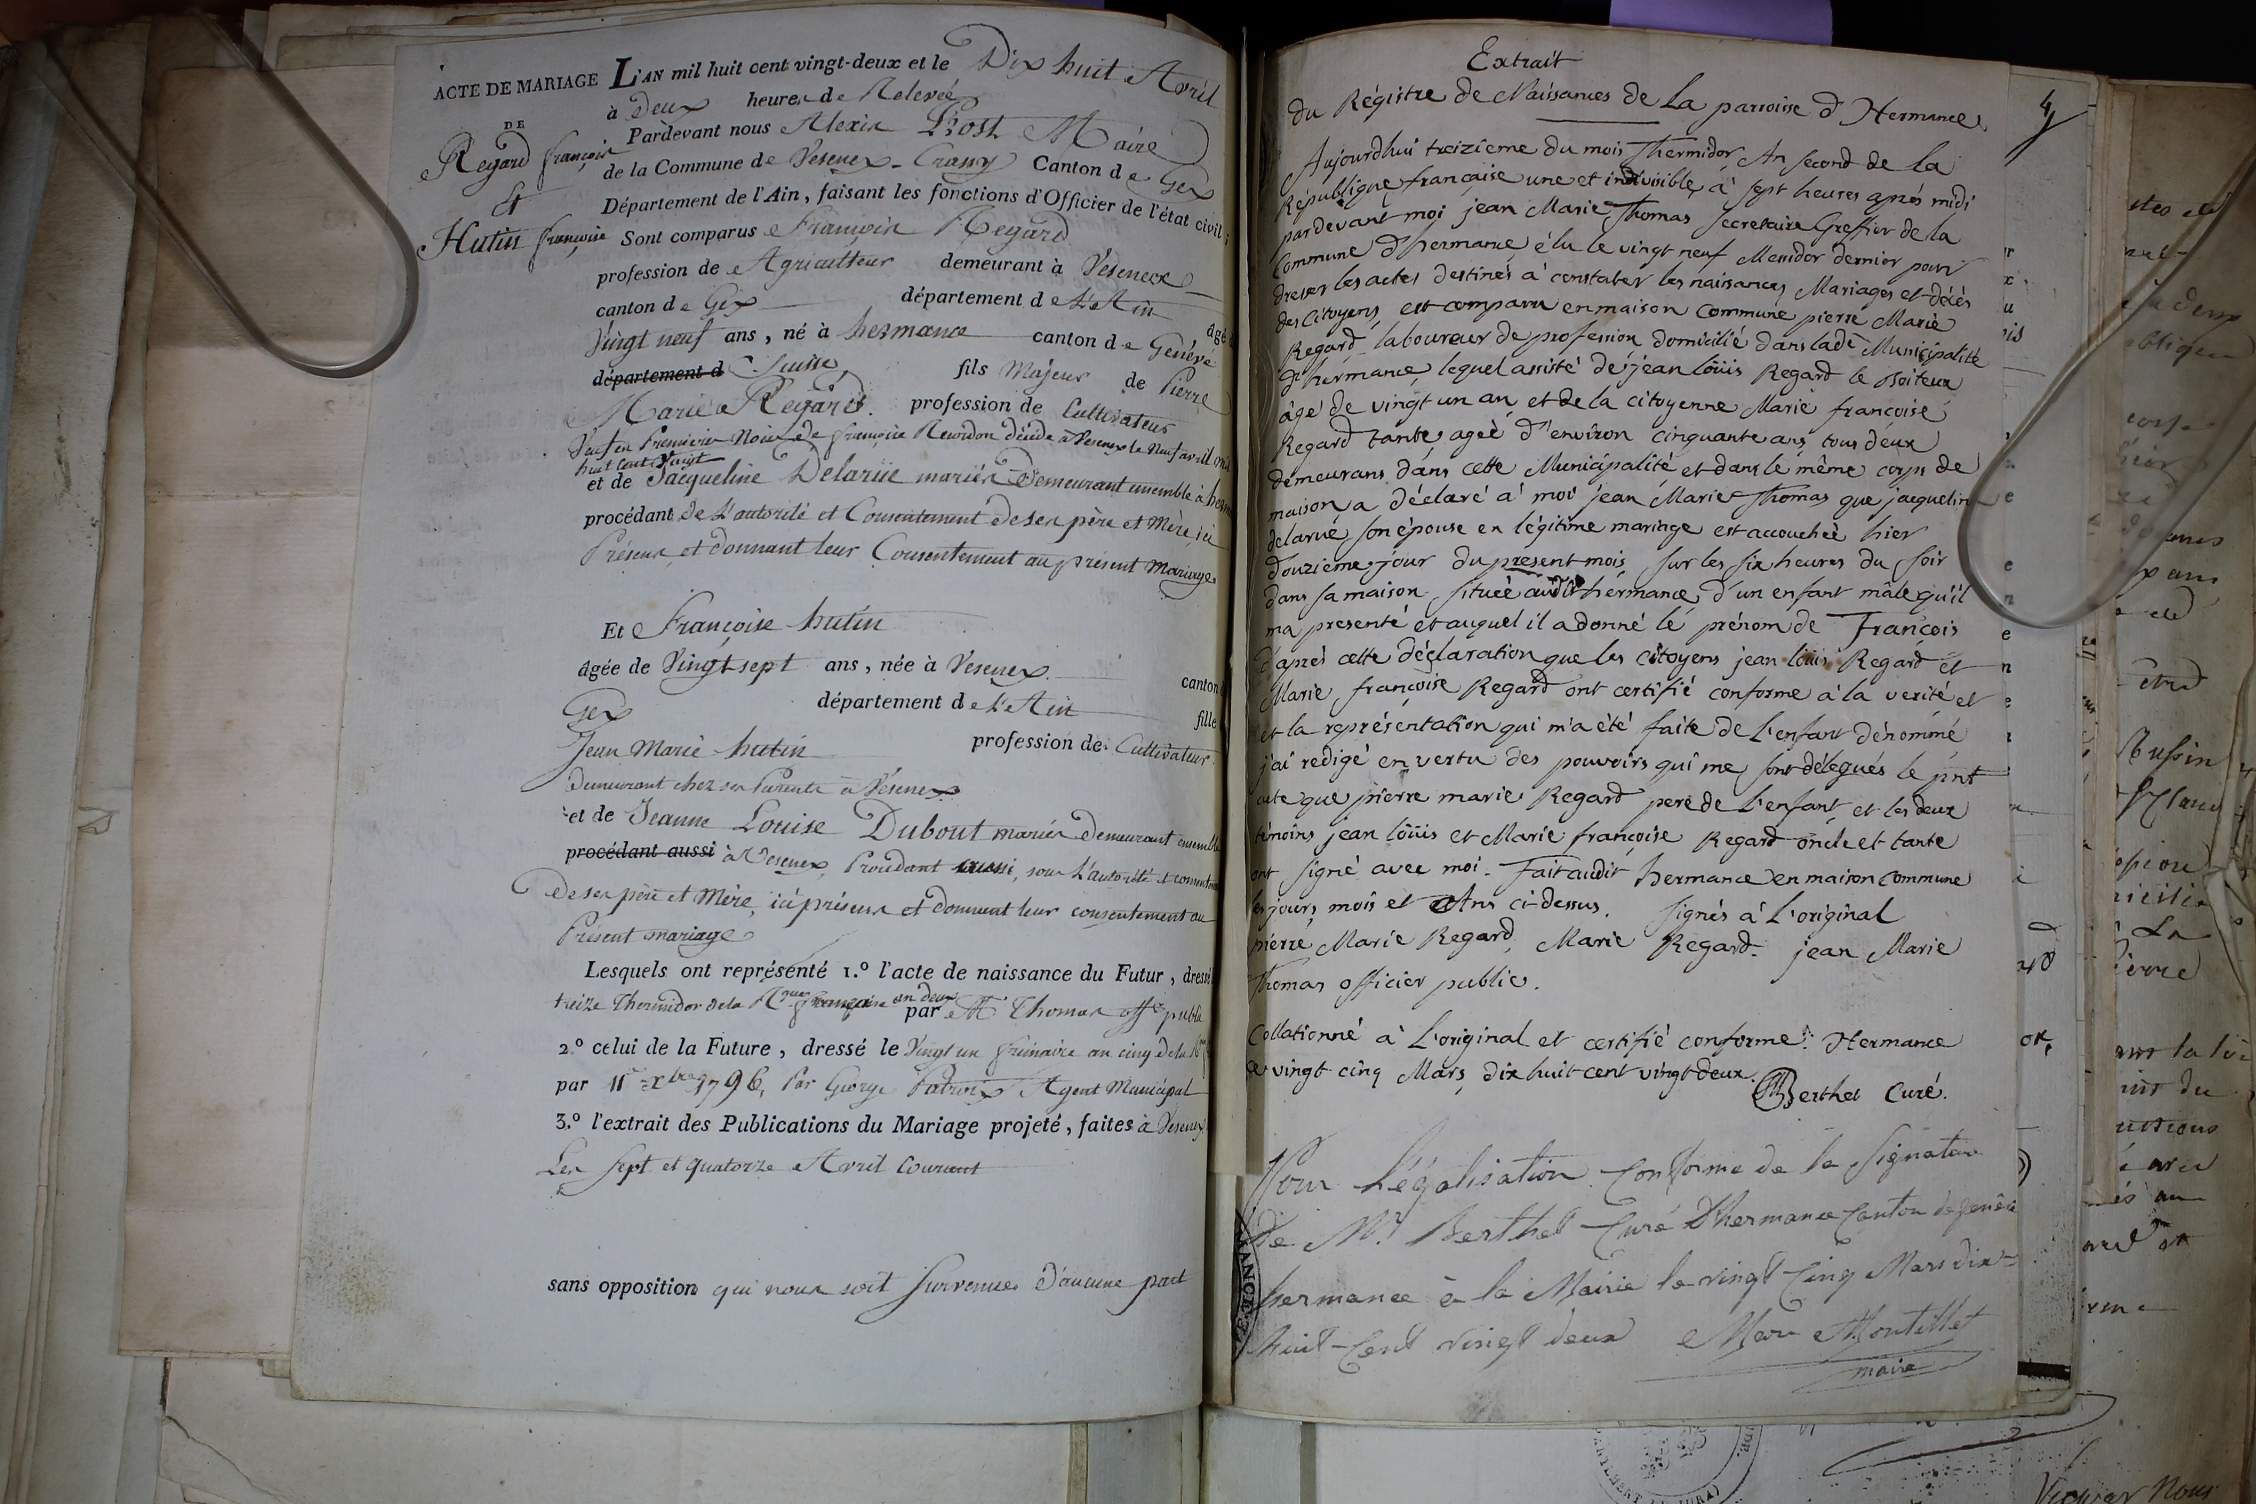 ACTE DE MARIAGE
DE
Regard françois
et
Hutin françoise
L'AN mil huit cent vingt-deux et le Dix huit Avril
à Deux heures de Relevée
Pardevant nous Alexis Prost Maire
de la Commune de Vesenex-Crassy Canton de Gex
Département de l'Ain, faisant les fonctions d'Officier de l'état civil;
Sont comparus François Regard
profession de Agriculteur demeurant à Vesenex
canton de Gex département de L'Ain âgé
Vingt neuf ans, né à hermance canton de Genève
département d Suisse, fils Majeur de Pierre
Marie Regard. profession de Cultivateur
Veuf en Premieres Noces de françoise Revirdon décédée à Vesenex le Neuf avril mil
huit Cent Vingt
et de Jacqueline Delarüe mariés Demeurant ensemble à herm
procédant de L'autorité et Consentement de ses père et Mère, ici
Présens et donnant leur Consentement au présent Mariage
Et Françoise hutin
âgée de Vingt sept ans, née à Vesenex canton
Gex département de L'Ain fille
Jean Marie hutin profession de Cultivateur
Demeurant chez ses Parents à Vésenex
et de Jeanne Louise Dubout mariés Demeurant ensemble
procédant aussi à Vesenex, Procédant aussi, sous L'autorité et consentement
de ses père et Mère, ici présens et donnent leur consentement au
Présent mariage
Lesquels ont représenté 1.º l'acte de naissance du Futur, dressé
treize Thermidor de la Rque française an deux par M Thomas offer public
2.º celui de la Future, dressé le Vingt un frimaire an cinq de la
par 11e xbre 1796, Par George Patroix Agent Municipal
3.º l'extrait des Publications du Mariage projeté, faites à Vesenex
Les sept et quatorze Avril Courant
sans opposition qui nous soit survenue d'aucune part
4
Extrait
du Régistre de Naissances de La parroisse d'Hermance
Aujourdhui treizieme du mois Thermidor An second de la
République française une et indivisible, à sept heures après midi
pardevant moi jean Marie Thomas secretaire Greffier de la
Commune d'hermance élu le vingt neuf Messidor dernier pour
dresser les actes destinés à constater les naissances Mariages et décès
des Citoyens, est comparu en maison Commune pierre Marie
Regard laboureur de profession domicilié dans ladte Municipalité
d'hermance, lequel assisté de jean loüis Regard le Boiteux
âgé de vingt un an et de la citoyenne Marie françoise
Regard tante, ageé d'environ cinquante ans, tous deux
demeurans dans cette Municipalité et dans le même corps de
maison, a déclaré à moi jean Marie Thomas que jacqueline
delarue son épouse en légitime mariage est accouchée hier
douzieme jour du present mois, sur les six heures du soir
dans sa maison située audit hermance, d'un enfant mâle qu'il
ma presenté et auquel il a donné le prénom de François
d'après cette déclaration que les citoyens jean loüis Regard et
Marie françoise Regard ont certifié conforme à la verité et
et la représentation qui m'a été faite de L'enfant dénommé
j'ai redigé en vertu des pouvoirs qui me sont délegués le pnt
acte que pierre marie Regard pere de L'enfant, et les deux
témoins jean loüis et Marie françoise Regard oncle et tante
ont signé avec moi. Fait audit hermance en maison commune
les jours, mois et Ans ci-dessus. signés à L'original
pierre Marie Regard, Marie Regard. jean Marie
Thomas officier public.
Collationné à L'original et certifié conforme. Hermance
le vingt cinq Mars, dix huit cent vingt deux.
Berthet Curé.
Pour Légalisation Conforme de la Signature
de Mr. Berthet Curé D'hermance Canton de genève
hermance à la Mairie le vingt Cinq Mars dix
huit-Cent vingt deux Marc Montillet
maire